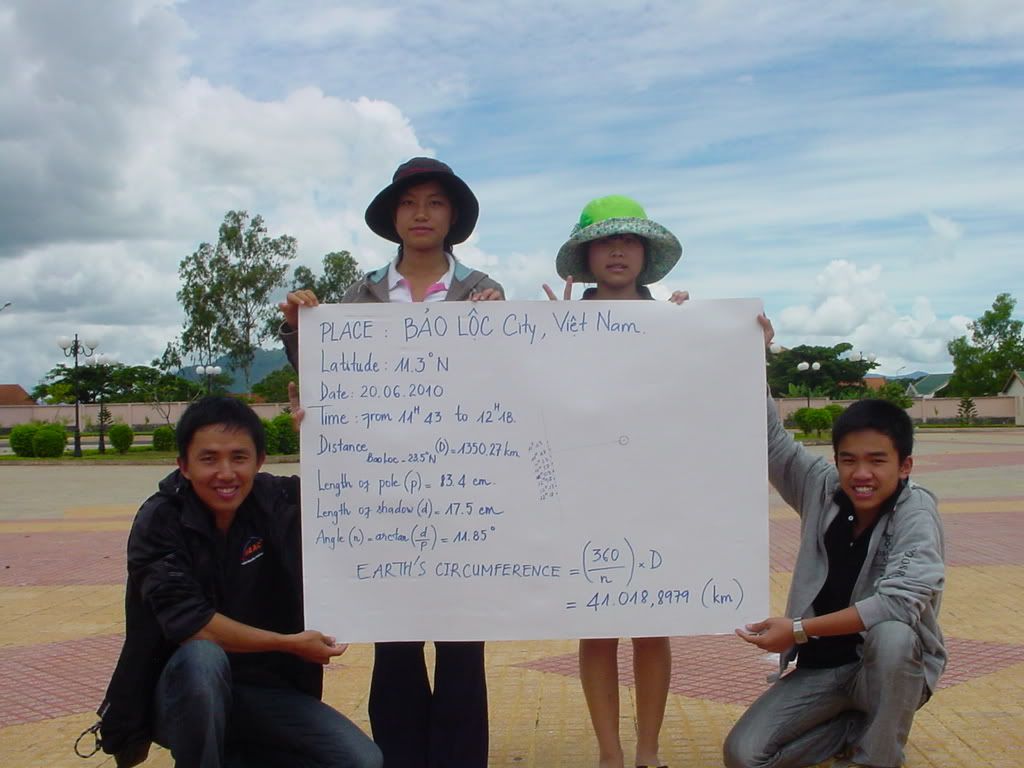 PLACE : BẢO LỘC City, Việt Nam.
Latitude : 11.3°N
Date: 20.06.2010
Time : from 11H43 to 12H18.
Distance Bao Loc - 23.5°N (D) = 1350,27 km
Length of pole (p) = 83.4 cm.
Length of shadow (d) = 17.5 cm
Angle (n) = arctan (d/p) = 11.85°
EARTH'S CIRCUMFERENCE = (360/n) × D
= 41.018,8979 (km)